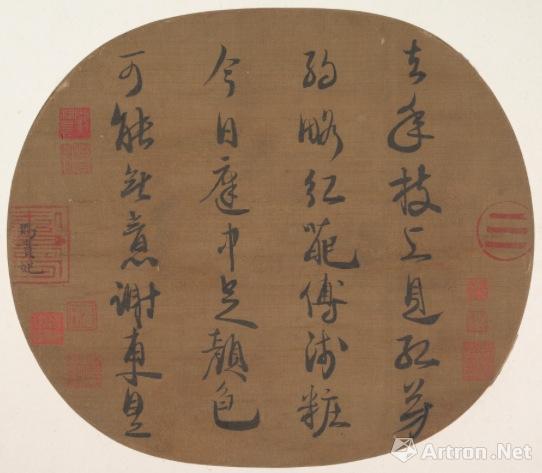 去年枝上見紅芳
約略紅葩傅淺粧
今日庭中足顏色
可能無意謝東皇
貴妃
Artron.Net